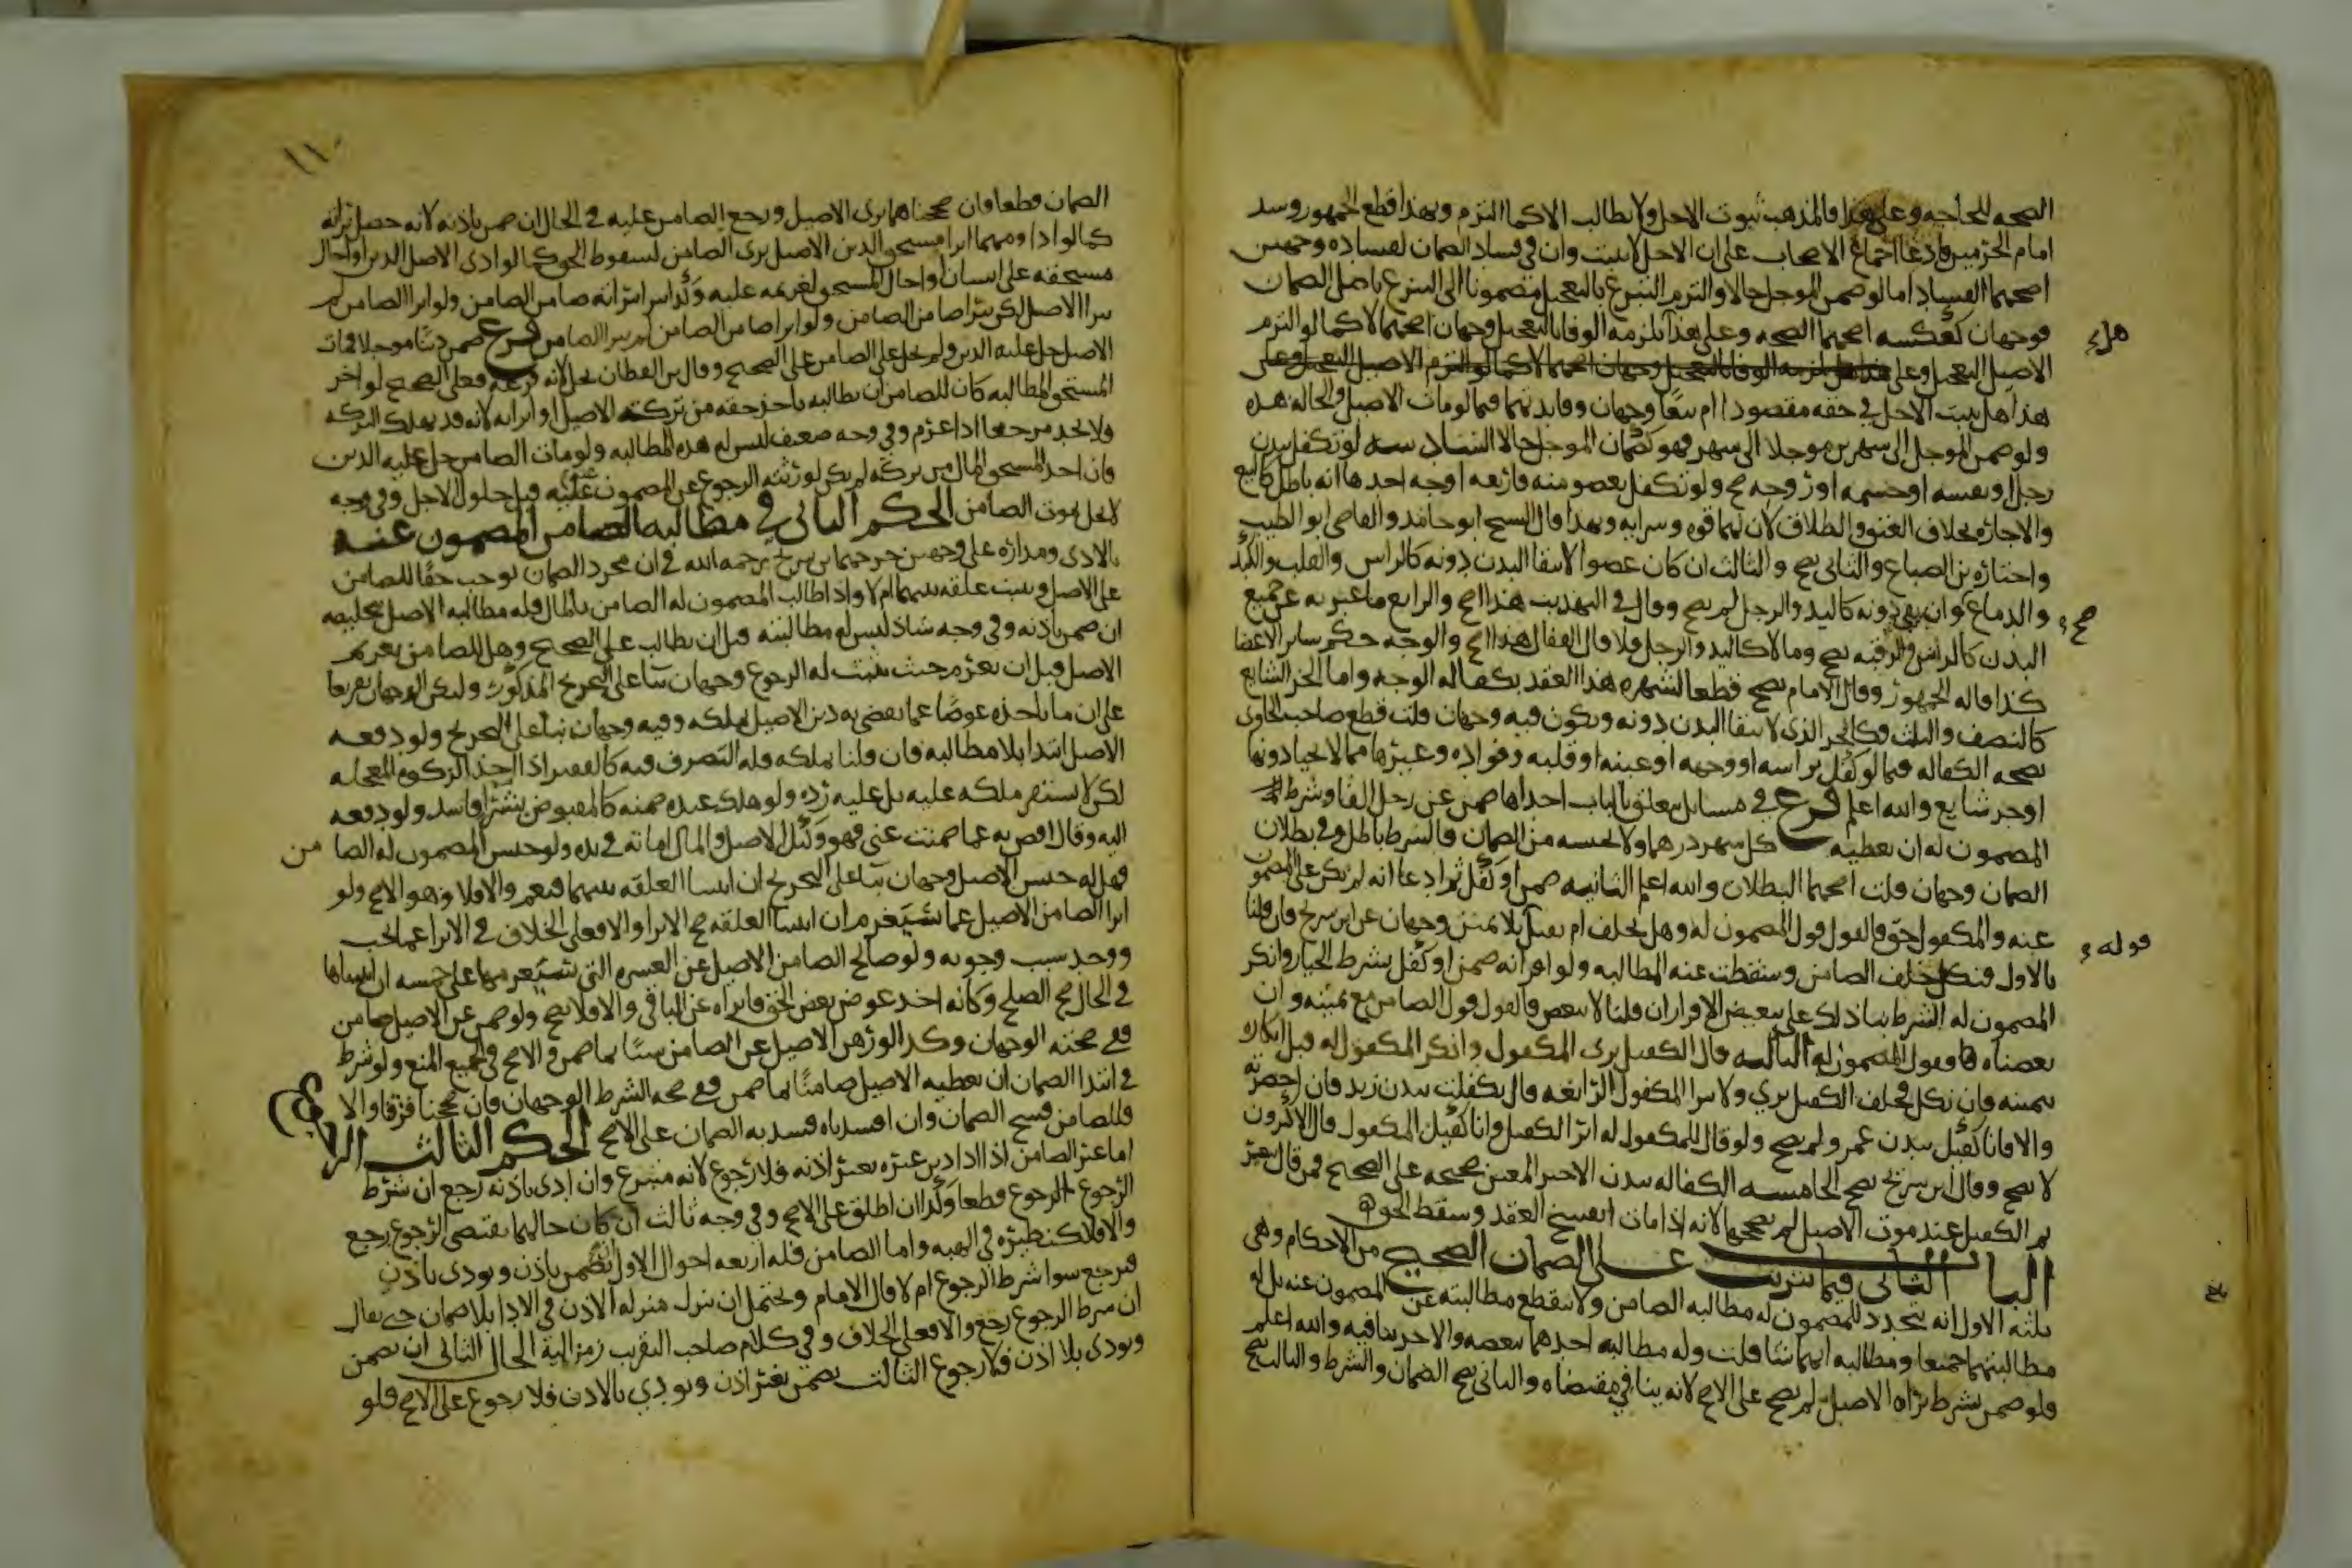 الصحه للحاجه وعلى هذا فالمذهب ثبوت الاجل ولا يطالب الا كما التزم وبهذا قطع الجمهور وشد
امام الحرمين فادعا اجماع الاصحاب على ان الاجل لا يثبت وان في فساد الضمان لفساده وجهين
اصحهما الفساد اما لو ضمن الموجل حالا والتزم التبرع بالتعجيل مضموما الى التبرع باصل الضمان
فوجهان كعكسه اصحهما الصحه وعلى هذا يلزمه الوفا بالتعجيل وجهان اصحهما لا كما لو التزم
هل
الاصيل التعجيل وعلى
هذا هل يثبت الاجل في حقه مقصودا ام تبعا وجهان وفايدتهما فيما لو مات الاصيل والحاله هذه
ولو ضمن الموجل الى شهرين موجلا الى شهر فهو كضمان الموجل حالا السادسه لو تكفل ببدن
رجل او نفسه او جسمه او روحه صح ولو تكفل بعضو منه فاربعه اوجه احدها انه باطل كالبيع
والاجاره بخلاف العتق والطلاق لان لهما قوه وسرايه وبهذا قال الشيخ ابو حامد والقاضي ابو الطيب
واختاره بن الصباغ والثاني يصح والثالث ان كان عضوا لا يبقا البدن دونه كالراس والقلب والكبد
والدماغ صح وان بقي دونه كاليد والرجل لم يصح وقال في التهذيب هذا اصح والرابع ما عبر به عن جميع
البدن كالراس والرقبه يصح وما لا كاليد والرجل فلا قال القفال هذا اصح والوجه حكم ساير الاعضا
كذا قاله الجمهور وقال الامام يصح قطعا لشهره هذا العقد بكفاله الوجه واما الجز الشايع
كالنصف والثلث فكالجز الذي لا يبقا البدن دونه ويكون فيه وجهان قلت قطع صاحب الحاوي
بصحه الكفاله فيما لو كفل براسه او وجهه او عينه او قلبه وفواده وغيرها مما لا يحيا دونها
او جز شايع والله اعلم فرع في مسايل تتعلق بالباب احداها ضمن عن رجل الفا وشرط
المضمون له ان يعطيه كل شهر درهما ولا يحسبه من الضمان فالشرط باطل وفي بطلان
الضمان وجهان قلت اصحهما البطلان والله اعلم الثانيه ضمن او كفل ثم ادعا انه لم يكن على المضمون
عنه والمكفول حق فالقول قول المضمون له وهل يحلف ام يقبل بلا يمين وجهان عن ابن سريج فان قلنا
قوله
بالاول فنكل حلف الضامن وسقطت عنه المطالبه ولو اقر انه ضمن او كفل بشرط الخيار وانكر
المضمون له الشرط بنا ذلك على تبعيض الاقرار ان قلنا لا يتبعض فالقول قول الضامن مع يمينه وان
بعضناه فالقول قول المضمون له الثالثه قال الكفيل بري المكفول وانكر المكفول له قبل انكاره
بيمينه فان نكل فحلف الكفيل بري ولا يبرا المكفول الرابعه قال تكفلت ببدن زيد فان احضرته
والا فانا كفيل ببدن عمر ولم يصح ولو قال للمكفول له ابر الكفيل وانا كفيل المكفول قال الاكثرون
لا يصح وقال ابن سريج يصح الخامسه الكفاله ببدن الاجير المعين صحيحه على الصحيح فمن قال
الكفيل عند موت الاصيل لم يصححها لانه اذا مات انفسخ العقد وسقط الحق
الباب الثاني فيما يترتب على الضمان الصحيح من الاحكام وهي
ثلثه الاول انه يتجدد للمضمون له مطالبه الضامن ولا ينقطع مطالبته عن المضمون عنه بل له
مطالبتهما جميعا ومطالبه ايهما شا قلت وله مطالبه احدهما ببعضه والاخر بباقيه والله اعلم
فلو ضمن بشرط براه الاصيل لم يصح على الاصح لانه ينافي مقتضاه والثاني يصح الضمان والشرط والثالث يصح
١١٠
الضمان فقط فان صححناهما بري الاصيل ورجع الضامن عليه في الحال ان ضمن باذنه لانه حصل براته
كما لو ادا ومهما ابرا مستحق الدين الاصيل بري الضامن لسقوط الحق كما لو ادى الاصيل الدين او احال
مستحقه على انسان او احال المستحق لغريمه عليه وكذا يبرا ببراته ضامن الضامن ولو ابرا الضامن لم
يبرا الاصيل لكن يبرا ضامن الضامن ولو ابرا ضامن الضامن لم يبرا الضامن فرع ضمن دينا موجلا فمات
الاصيل حل عليه الدين ولم يحل على الضامن على الصحيح وقال بن القطان يحل لانه فرعه فعلى الصحيح لو اخر
المستحق المطالبه كان للضامن ان يطالبه باخذ حقه من تركه الاصيل او ابرايه لانه قد يهلك التركه
ولا يجد مرجعا اذا غرم وفي وجه ضعيف ليس له هذه المطالبه ولو مات الضامن حل عليه الدين
فان اخذ المستحق المال من تركته لم يكن لورثته الرجوع على المضمون عنه قبل حلول الاجل وفي وجه
لا يحل بموت الضامن الحكم الثاني في مطالبه الضامن المضمون عنه
بالادى ومداره على وجهين خرجهما بن سريج رحمه الله في ان مجرد الضمان يوجب حقا للضامن
على الاصيل ويثبت علقه بينهما ام لا واذا طالب المضمون له الضامن بالمال فله مطالبه الاصيل بتخليصه
ان ضمن باذنه وفي وجه شاذ ليس له مطالبته قبل ان يطالب على الصحيح وهل للضامن تغريم
الاصيل قبل ان يغرم حيث يثبت له الرجوع وجهان بنا على التخريج المذكور وليكن الوجهان تفريعا
على ان ما ياخذه عوضا عما يقضي به دين الاصيل يملكه وفيه وجهان بنا على التخريج ولو دفعه
الاصيل ابتدا بلا مطالبه فان قلنا يملكه فله التصرف فيه كالفقير اذا اخذ الزكوه المعجله
لكن لا يستقر ملكه عليه بل عليه رده ولو هلك عنده ضمنه كالمقبوض بشرا فاسد ولو دفعه
اليه وقال اقض به ما ضمنت عني فهو وكيل الاصيل والمال امانه في يده ولو حبس المضمون له الضامن
فهل له حبس الاصيل وجهان بنا على التخريج ان اثبتنا العلقه بينهما فنعم والا فلا وهو الاصح ولو
ابرا الضامن الاصيل عما سيغرم ان اثبتنا العلقه صح الابرا والا فعلى الخلاف في الابرا عما لم يجب
ووجد سبب وجوبه ولو صالح الضامن الاصيل عن العشره التي سيغرمها على خمسه ان اثبتناها
في الحال صح الصلح وكانه اخذ عوض بعض الحق وابراه عن الباقي والا فلا يصح ولو ضمن عن الاصيل ضامن
ففي صحته الوجهان وكذا لو رهن الاصيل عن الضامن شيا بما ضمن والاصح في الجميع المنع ولو شرط
في ابتدا الضمان ان يعطيه الاصيل ضامنا بما ضمن ففي صحه الشرط الوجهان فان صححنا فوفا والا
فللضامن فسخ الضمان وان افسدناه فسد به الضمان على الاصح الحكم الثالث الرجوع
اما غير الضامن اذا ادا دين غيره بغير اذنه فلا رجوع لانه متبرع وان ادى باذنه رجع ان شرط
الرجوع قطعا وكذا ان اطلق على الاصح وفي وجه ثالث ان كان حالهما يقتضي الرجوع رجع
والا فلا كنظيره في الهبه واما الضامن فله اربعه احوال الاول ان يضمن باذن ويودى باذن
فيرجع سوا شرط الرجوع ام لا قال الامام ويحتمل ان ينزل منزله الاذن في الادا بلا ضمان حتى يقال
ان شرط الرجوع رجع والا فعلى الخلاف وفي كلام صاحب التقريب رمز اليه الحال الثاني ان يضمن
ويودى بلا اذن فلا رجوع الثالث يضمن بغير اذن ويودي بالاذن فلا رجوع على الاصح فلو